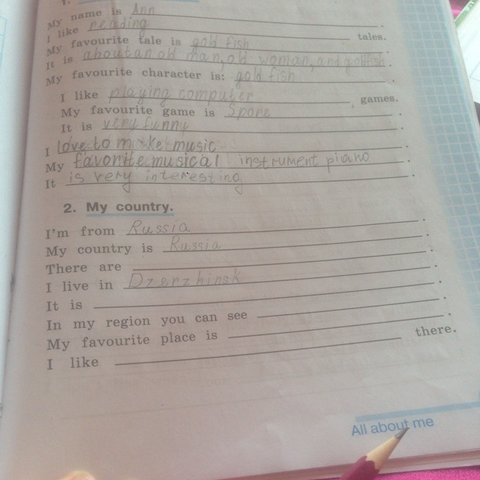 1.
My name is Ann.
I like reading tales.
My favourite tale is gold fish.
It is about an old man, old woman, and goldfish.
My favourite character is: gold fish.
I like playing computer, games.
My favourite game is Spore.
It is very funny.
I love to make music.
My favorite musical instrument piano
It is very interesting.
2. My country.
I'm from Russia.
My country is Russia.
There are.
I live in Dzerzhinsk.
It is.
In my region you can see.
My favourite place is.
I like there.
All about me